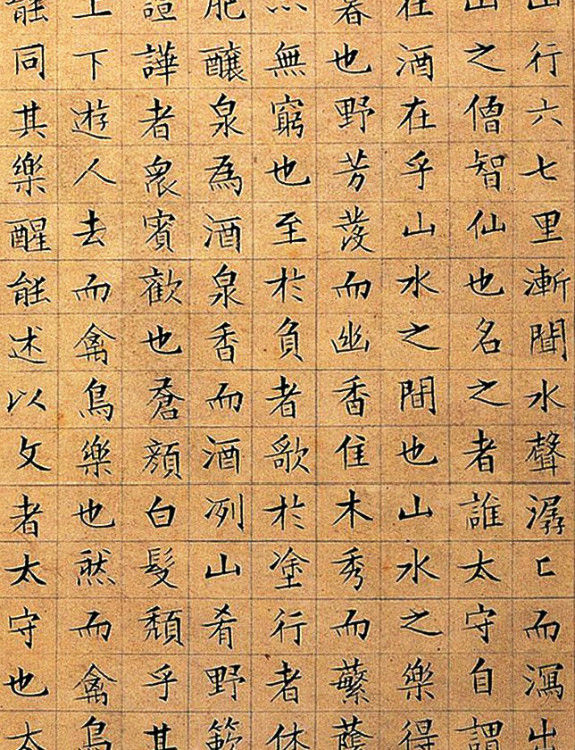 山行六七里漸聞水聲潺〻而瀉出
山之僧智仙也名之者誰太守自謂
在酒在乎山水之間也山水之樂得
暮也野芳發而幽香佳木秀而繁蔭
無窮也至於負者歌於塗行者休
肥釀泉為酒泉香而酒冽山肴野蔌
諠譁者衆賓歡也蒼顔白髮頹乎其
上下遊人去而禽鳥樂也然而禽鳥
能同其樂醒能述以文者太守也太